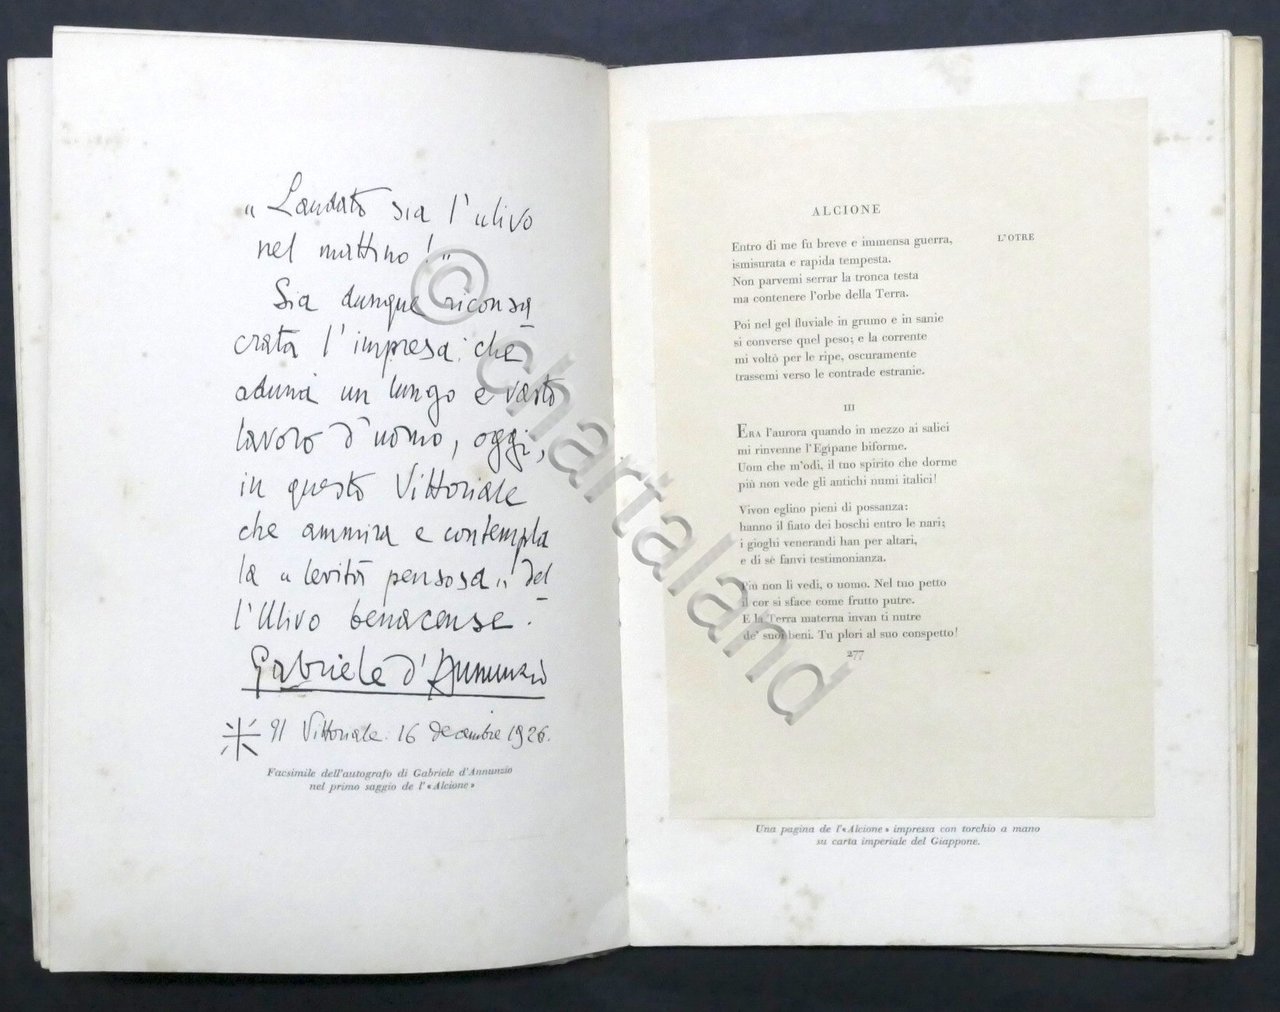 "Laudato sia l'ulivo
nel mattino!"
Sia dunque riconsa
crata l'impresa: che
aduna un lungo e vasto
lavoro d'uomo, oggi,
in questo Vittoriale
che ammira e contempla
la "levità pensosa" del
l'Ulivo benacense.
Gabriele d'Annunzio
Il Vittoriale. 16 decembre 1926.
Facsimile dell'autografo di Gabriele d'Annunzio
nel primo saggio de l'«Alcione»
ALCIONE
L'OTRE
Entro di me fu breve e immensa guerra,
ismisurata e rapida tempesta.
Non parvemi serrar la tronca testa
ma contenere l'orbe della Terra.
Poi nel gel fluviale in grumo e in sanie
si converse quel peso; e la corrente
mi voltò per le ripe, oscuramente
trassemi verso le contrade estranie.
III
ERA l'aurora quando in mezzo ai salici
mi rinvenne l'Egipane biforme.
Uom che m'odi, il tuo spirito che dorme
più non vede gli antichi numi italici!
Vivon eglino pieni di possanza:
hanno il fiato dei boschi entro le nari;
i gioghi venerandi han per altari,
e di sè fanvi testimonianza.
Più non li vedi, o uomo. Nel tuo petto
il cor si sface come frutto putre.
E la Terra materna invan ti nutre
de' suoi beni. Tu plori al suo conspetto!
277
Una pagina de l'«Alcione» impressa con torchio a mano
su carta imperiale del Giappone.
© chartaland